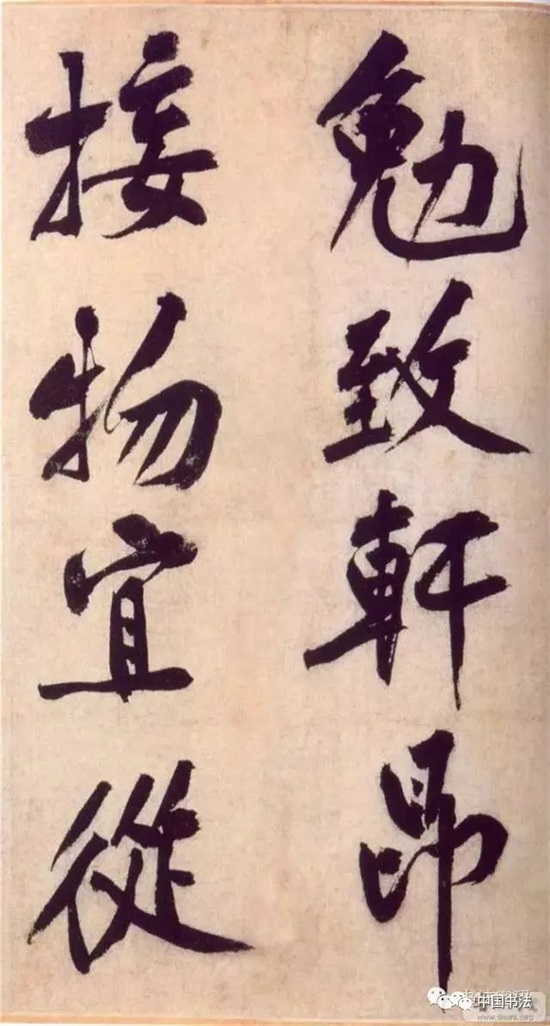 勉致軒昂
接物宜從
中国书法